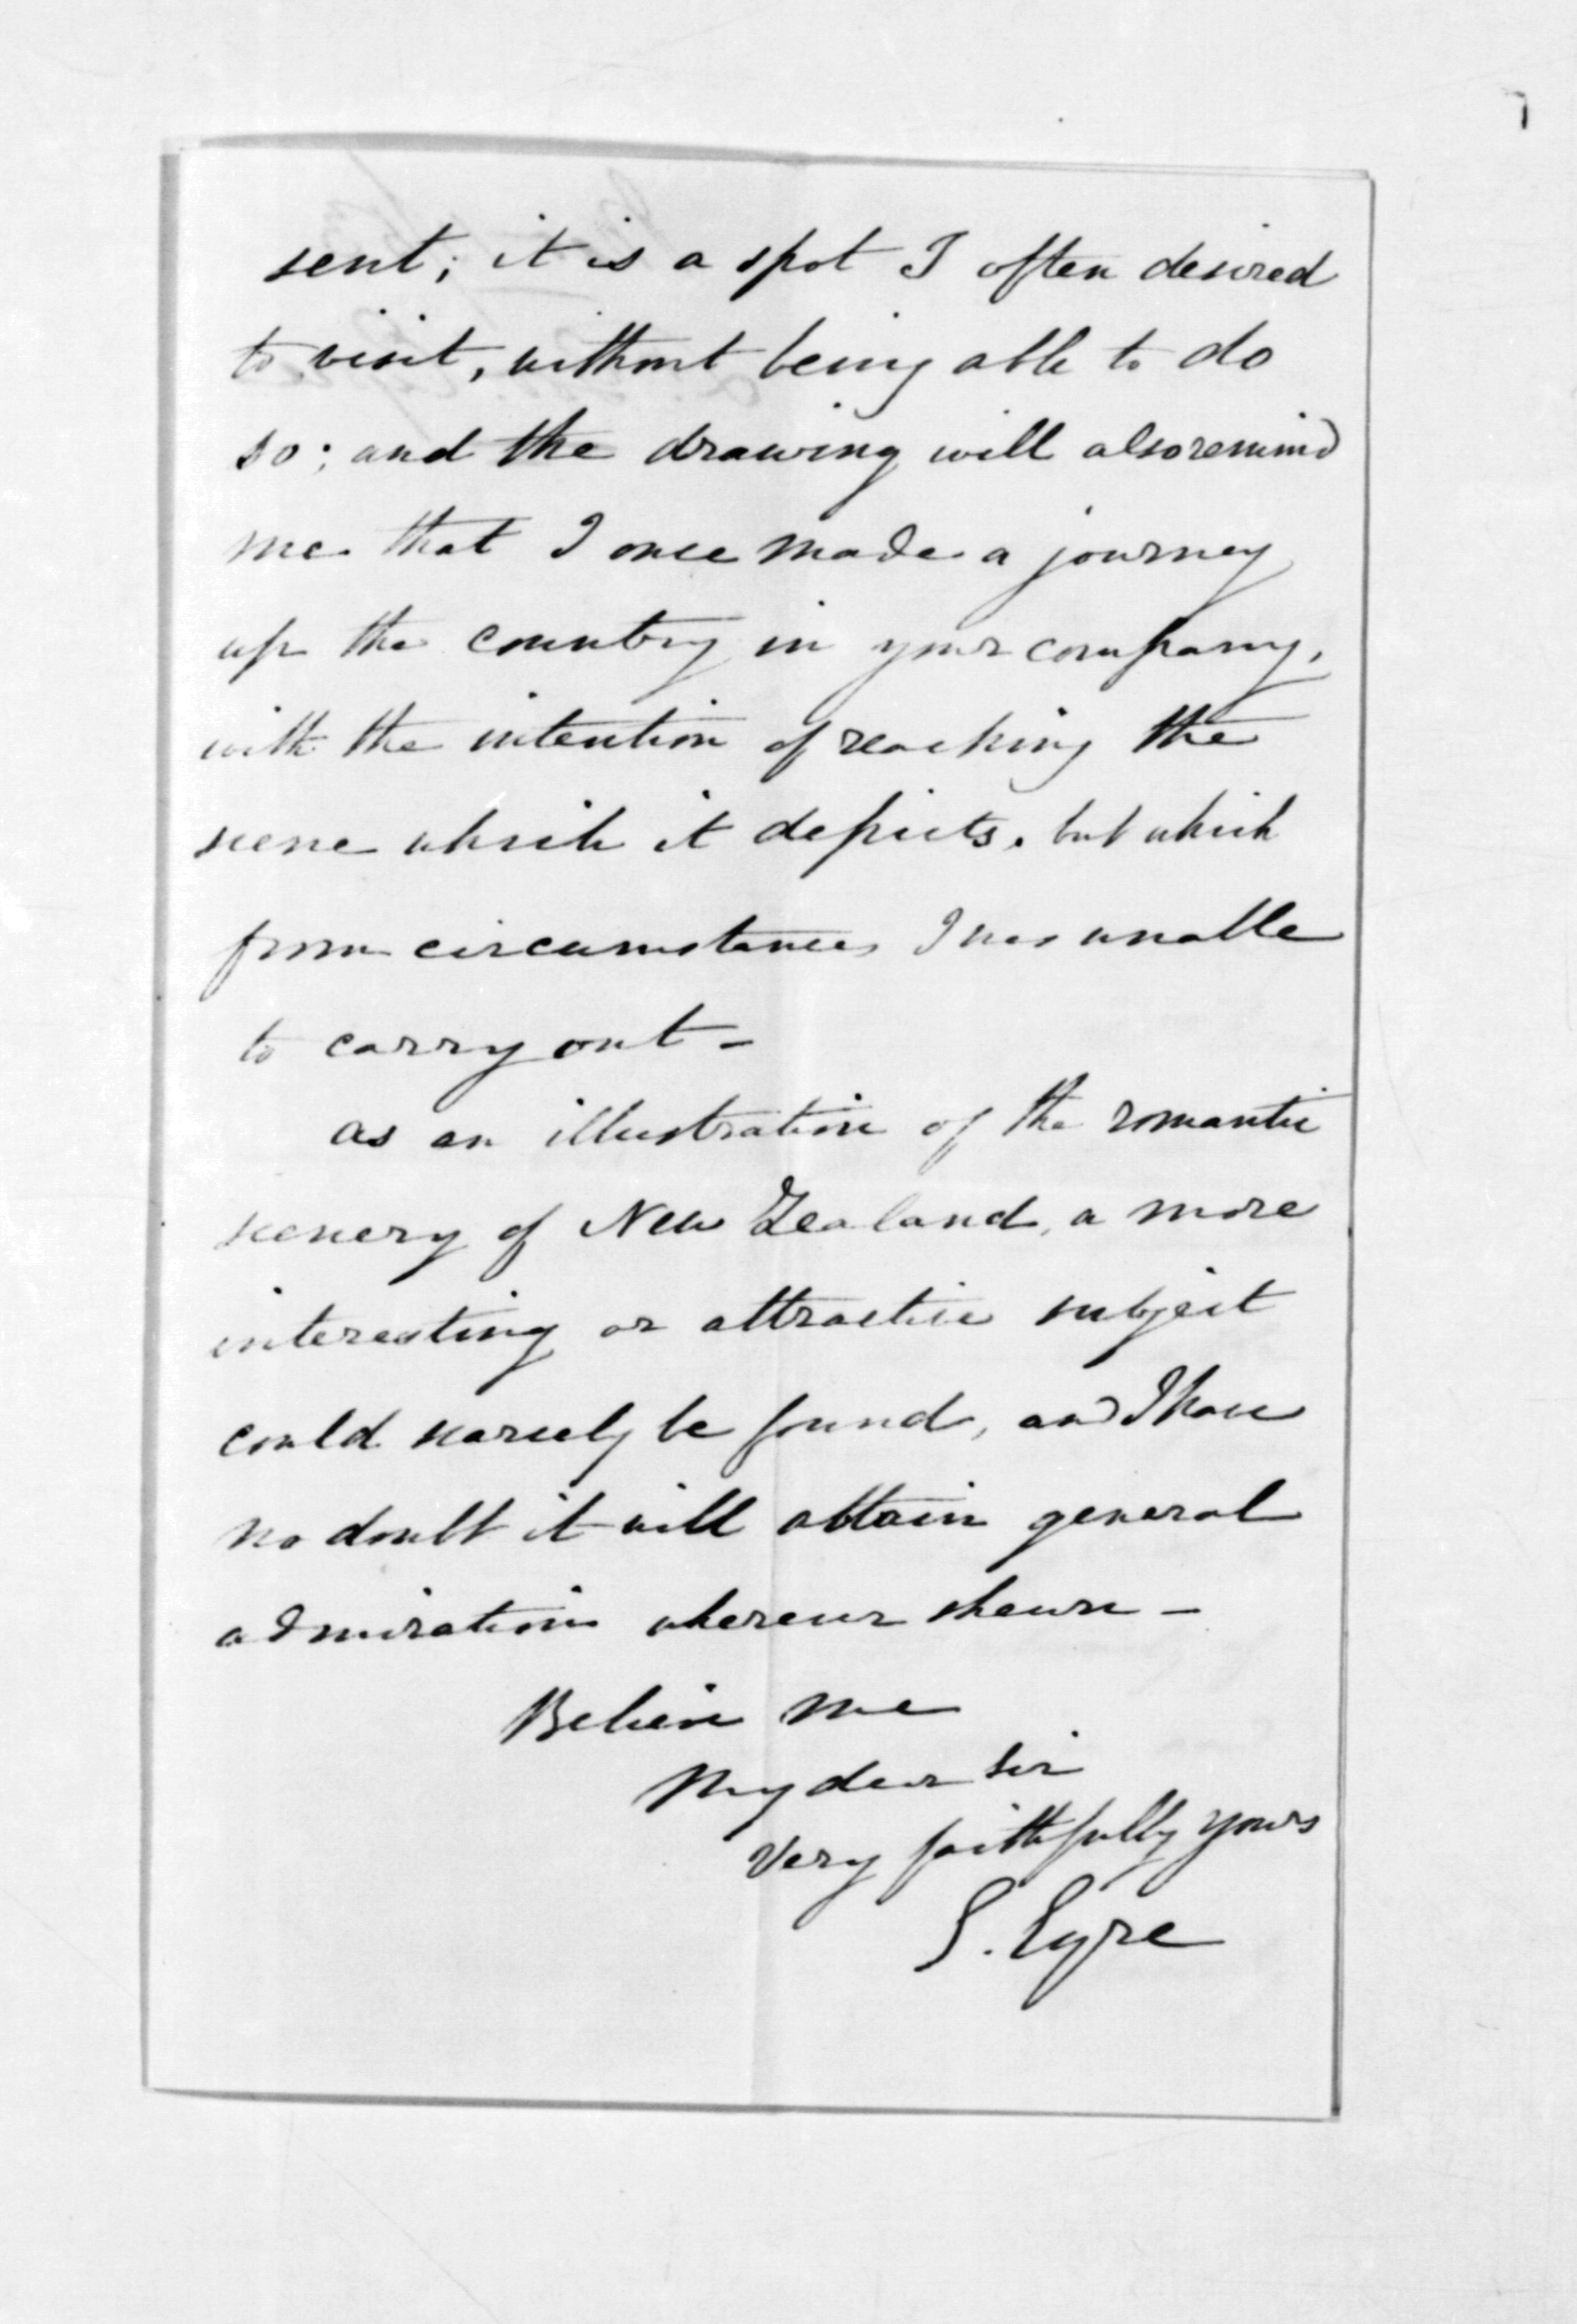 sent; it is a spot I often desired
to visit, without being able to do
so; and the drawing will also remind
me that I once made a journey
up the country in your company,
with the intention of reaching the
scene which it depicts. but which
from circumstances I was unable
to carry out -
as an illustration of the romantic
scenery of New Zealand, a more
interesting or attractive subject
could scarcely be found, and I have
no doubt it will attain general
admiration wherever shewn -
Believe me
My dear Sir
Very faithfully yours
E. Eyre